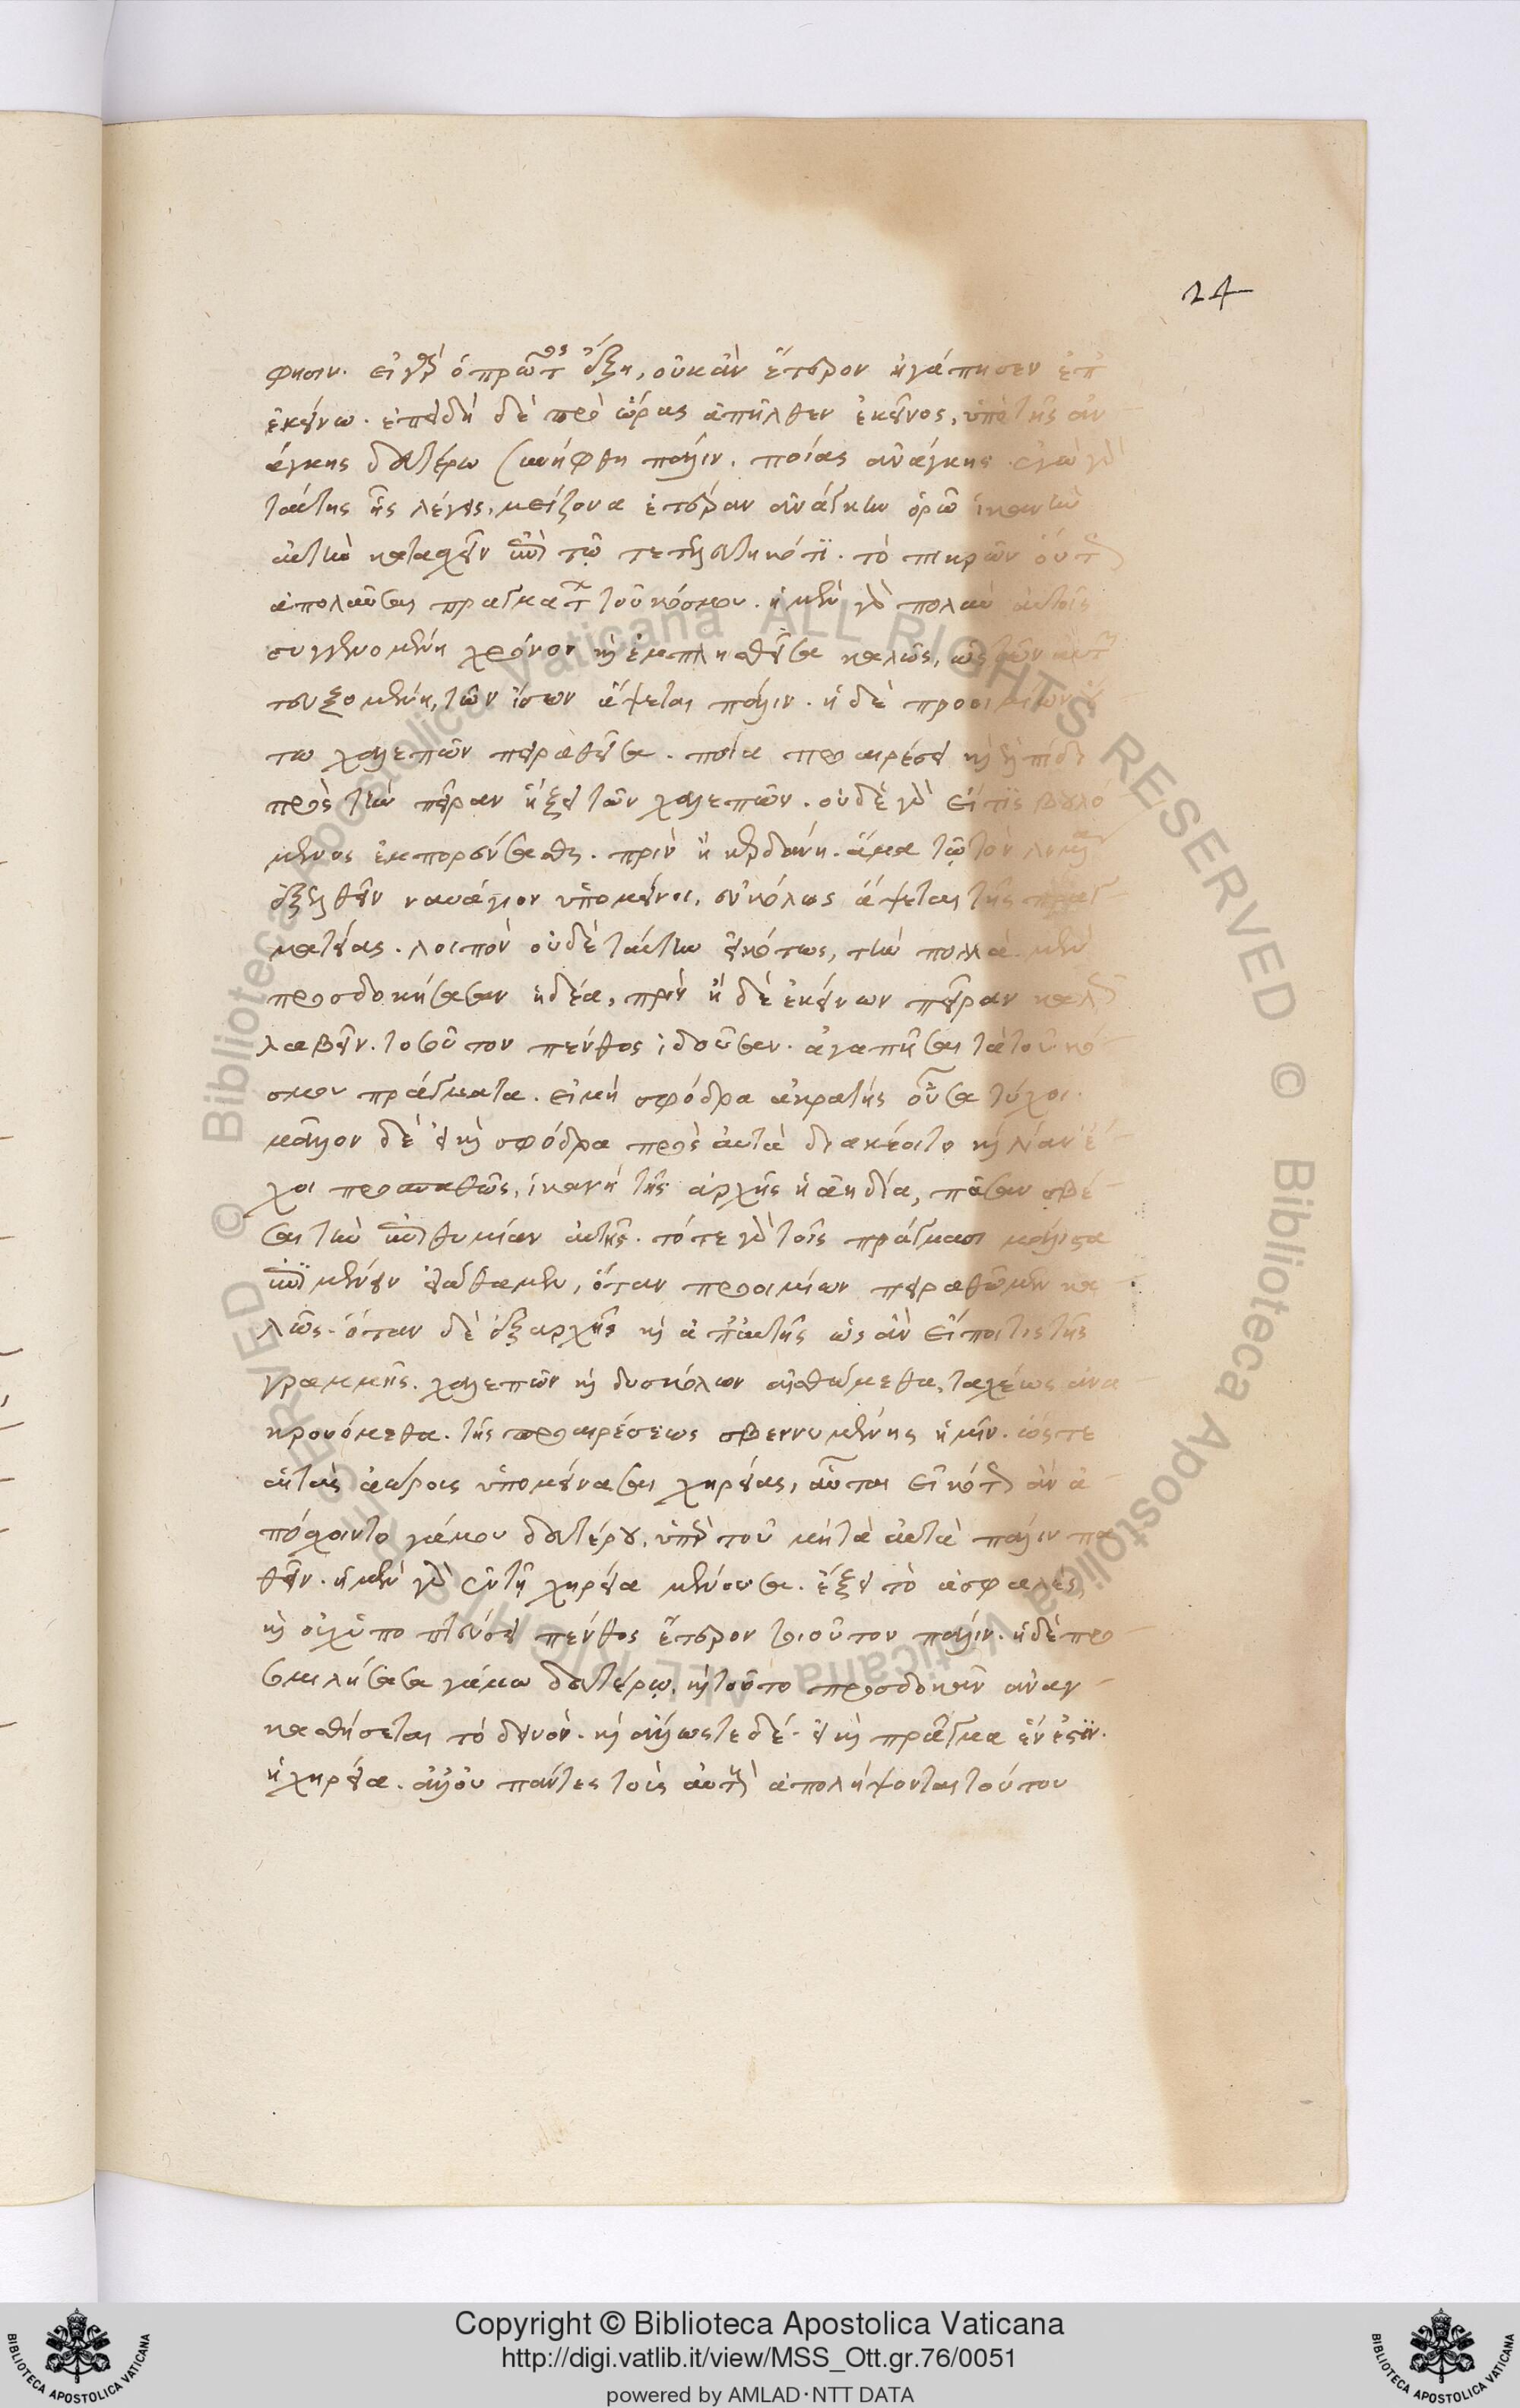 24
φησιν. εἰ γὰρ ὁ πρῶτος ἔζη, οὐκ ἂν ἕτερον ἠγάπησεν ἐπ
ἐκείνω. ἐπειδὴ δὲ πρὸ ὥρας ἀπῆλθεν ἐκεῖνος, ὑπὸ τῆς ἀν
άγκης δευτέρω συνήφθη πάλιν. ποίας ἀνάγκης. ἐγὼ γὰρ
ταύτης ἧς λέγεις, μείζονα ἑτέραν ἀνάγκην ὁρῶ ἱκανὴν
αὐτὴν κατασχεῖν ἐπὶ τῷ τετελευτηκότι. τὸ πικρῶν οὕτως
ἀπολαῦσαι πραγμάτων τοῦ κόσμου. ἡ μὲν γὰρ πολὺν αὐτοῖς
συγγενομένη χρόνον καὶ ἐμπλησθεῖσα καλῶς, ὡς τῶν αὐτῶν
τευξομένη, τῶν ἴσων ἅψεται πάλιν. ἡ δὲ προοιμίων οὕ
τω χαλεπῶν πειραθεῖσα. ποία προαιρέσει καὶ ἐλπίδι
πρὸς τὴν πεῖραν ἥξει τῶν χαλεπῶν. οὐδὲ γὰρ εἴ τις βουλό
μενος ἐμπορεύσασθαι. πρὶν ἢ κερδάνη. ἅμα τῷ τὸν λιμένα
ἐξελθεῖν ναυάγιον ὑπομείνοι, εὐκόλως ἅψεται τῆς πραγ
ματείας. λοιπὸν οὐδὲ ταύτην εἰκότως, τὴν πολλὰ μὲν
προσδοκήσασαν ἡδέα, πρὶν ἢ δὲ ἐκείνων πεῖραν καλῶς
λαβεῖν. τοσοῦτον πένθος ἰδοῦσαν. ἀγαπῆσαι τὰ τοῦ κό
σμου πράγματα. εἰ μὴ σφόδρα ἀκρατὴς οὖσα τύχοι.
μᾶλλον δὲ εἰ καὶ σφόδρα πρὸς αὐτὰ διακέοιτο καὶ λίαν ἔ
χοι προσπαθῶς, ἱκανὴ τῆς ἀρχῆς ἡ ἀηδία, πᾶσαν σβέ
σαι τὴν ἐπιθυμίαν αὐτῆς. τότε γὰρ τοῖς πράγμασι μάλιστα
ἐπιμένειν εἰώθαμεν, ὅταν προοιμίων πειραθῶμεν κα
λῶς. ὅταν δὲ ἐξαρχῆς καὶ ἀπ' αὐτῆς ὡς ἂν εἴποι τις τῆς
γραμμῆς. χαλεπῶν καὶ δυσκόλων αἰσθώμεθα, ταχέως ἀνα
κρουόμεθα. τῆς προαιρέσεως σβεννυμένης ἡμῖν. ὥστε
αἱ τὰς ἀώρους ὑπομείνασαι χηρείας, αὗται εἰκότως ἂν ἀ
πόσχοιντο γάμου δευτέρου, ὑπὲρ τοῦ μὴ τὰ αὐτὰ πάλιν πα
θεῖν. ἡ μὲν γὰρ ἐν τῇ χηρεία μένουσα. ἕξει τὸ ἀσφαλές,
καὶ οὐχ ὑποπτεύσει πένθος ἕτερον τοιοῦτον πάλιν. ἡ δὲ προ
σομιλήσασα γάμω δευτέρῳ, καὶ τοῦτο προσδοκᾶν ἀναγ
κασθήσεται τὸ δεινόν. καὶ ἄλλως τε δέ. εἰ καὶ πρᾶγμα ἕν ἐστιν.
ἡ χηρεία. ἀλλ' οὐ πάντες τοὺς αὐτοὺς ἀπολήψονται τούτου
Copyright © Biblioteca Apostolica Vaticana
http://digi.vatlib.it/view/MSS_Ott.gr.76/0051
powered by AMLAD·NTT DATA